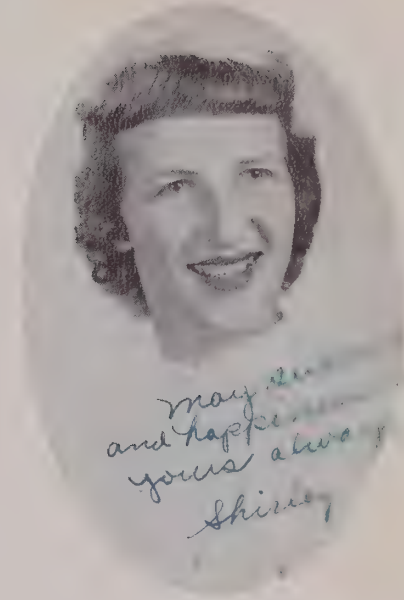 May
and happiness
yours always
Shirley